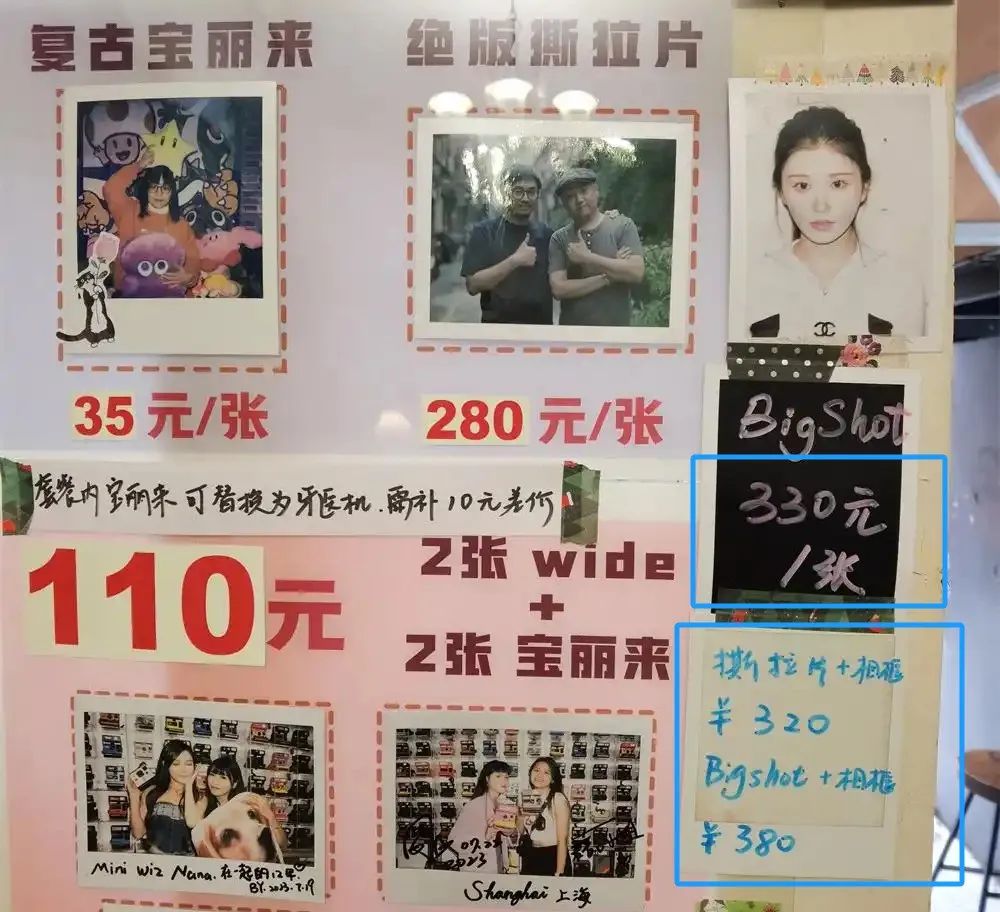 复古宝丽来
绝版撕拉片
35元/张
280元/张
BigShot
330元
/张
套餐内宝丽来可替换为牙医机.需补10元差价
110元
2张 wide
+
2张 宝丽来
撕拉片+相框
¥320
Bigshot+相框
¥380
Mini Wiz Nana.在一起的12年
BY.2023.7.19
2023
Shanghai 上海